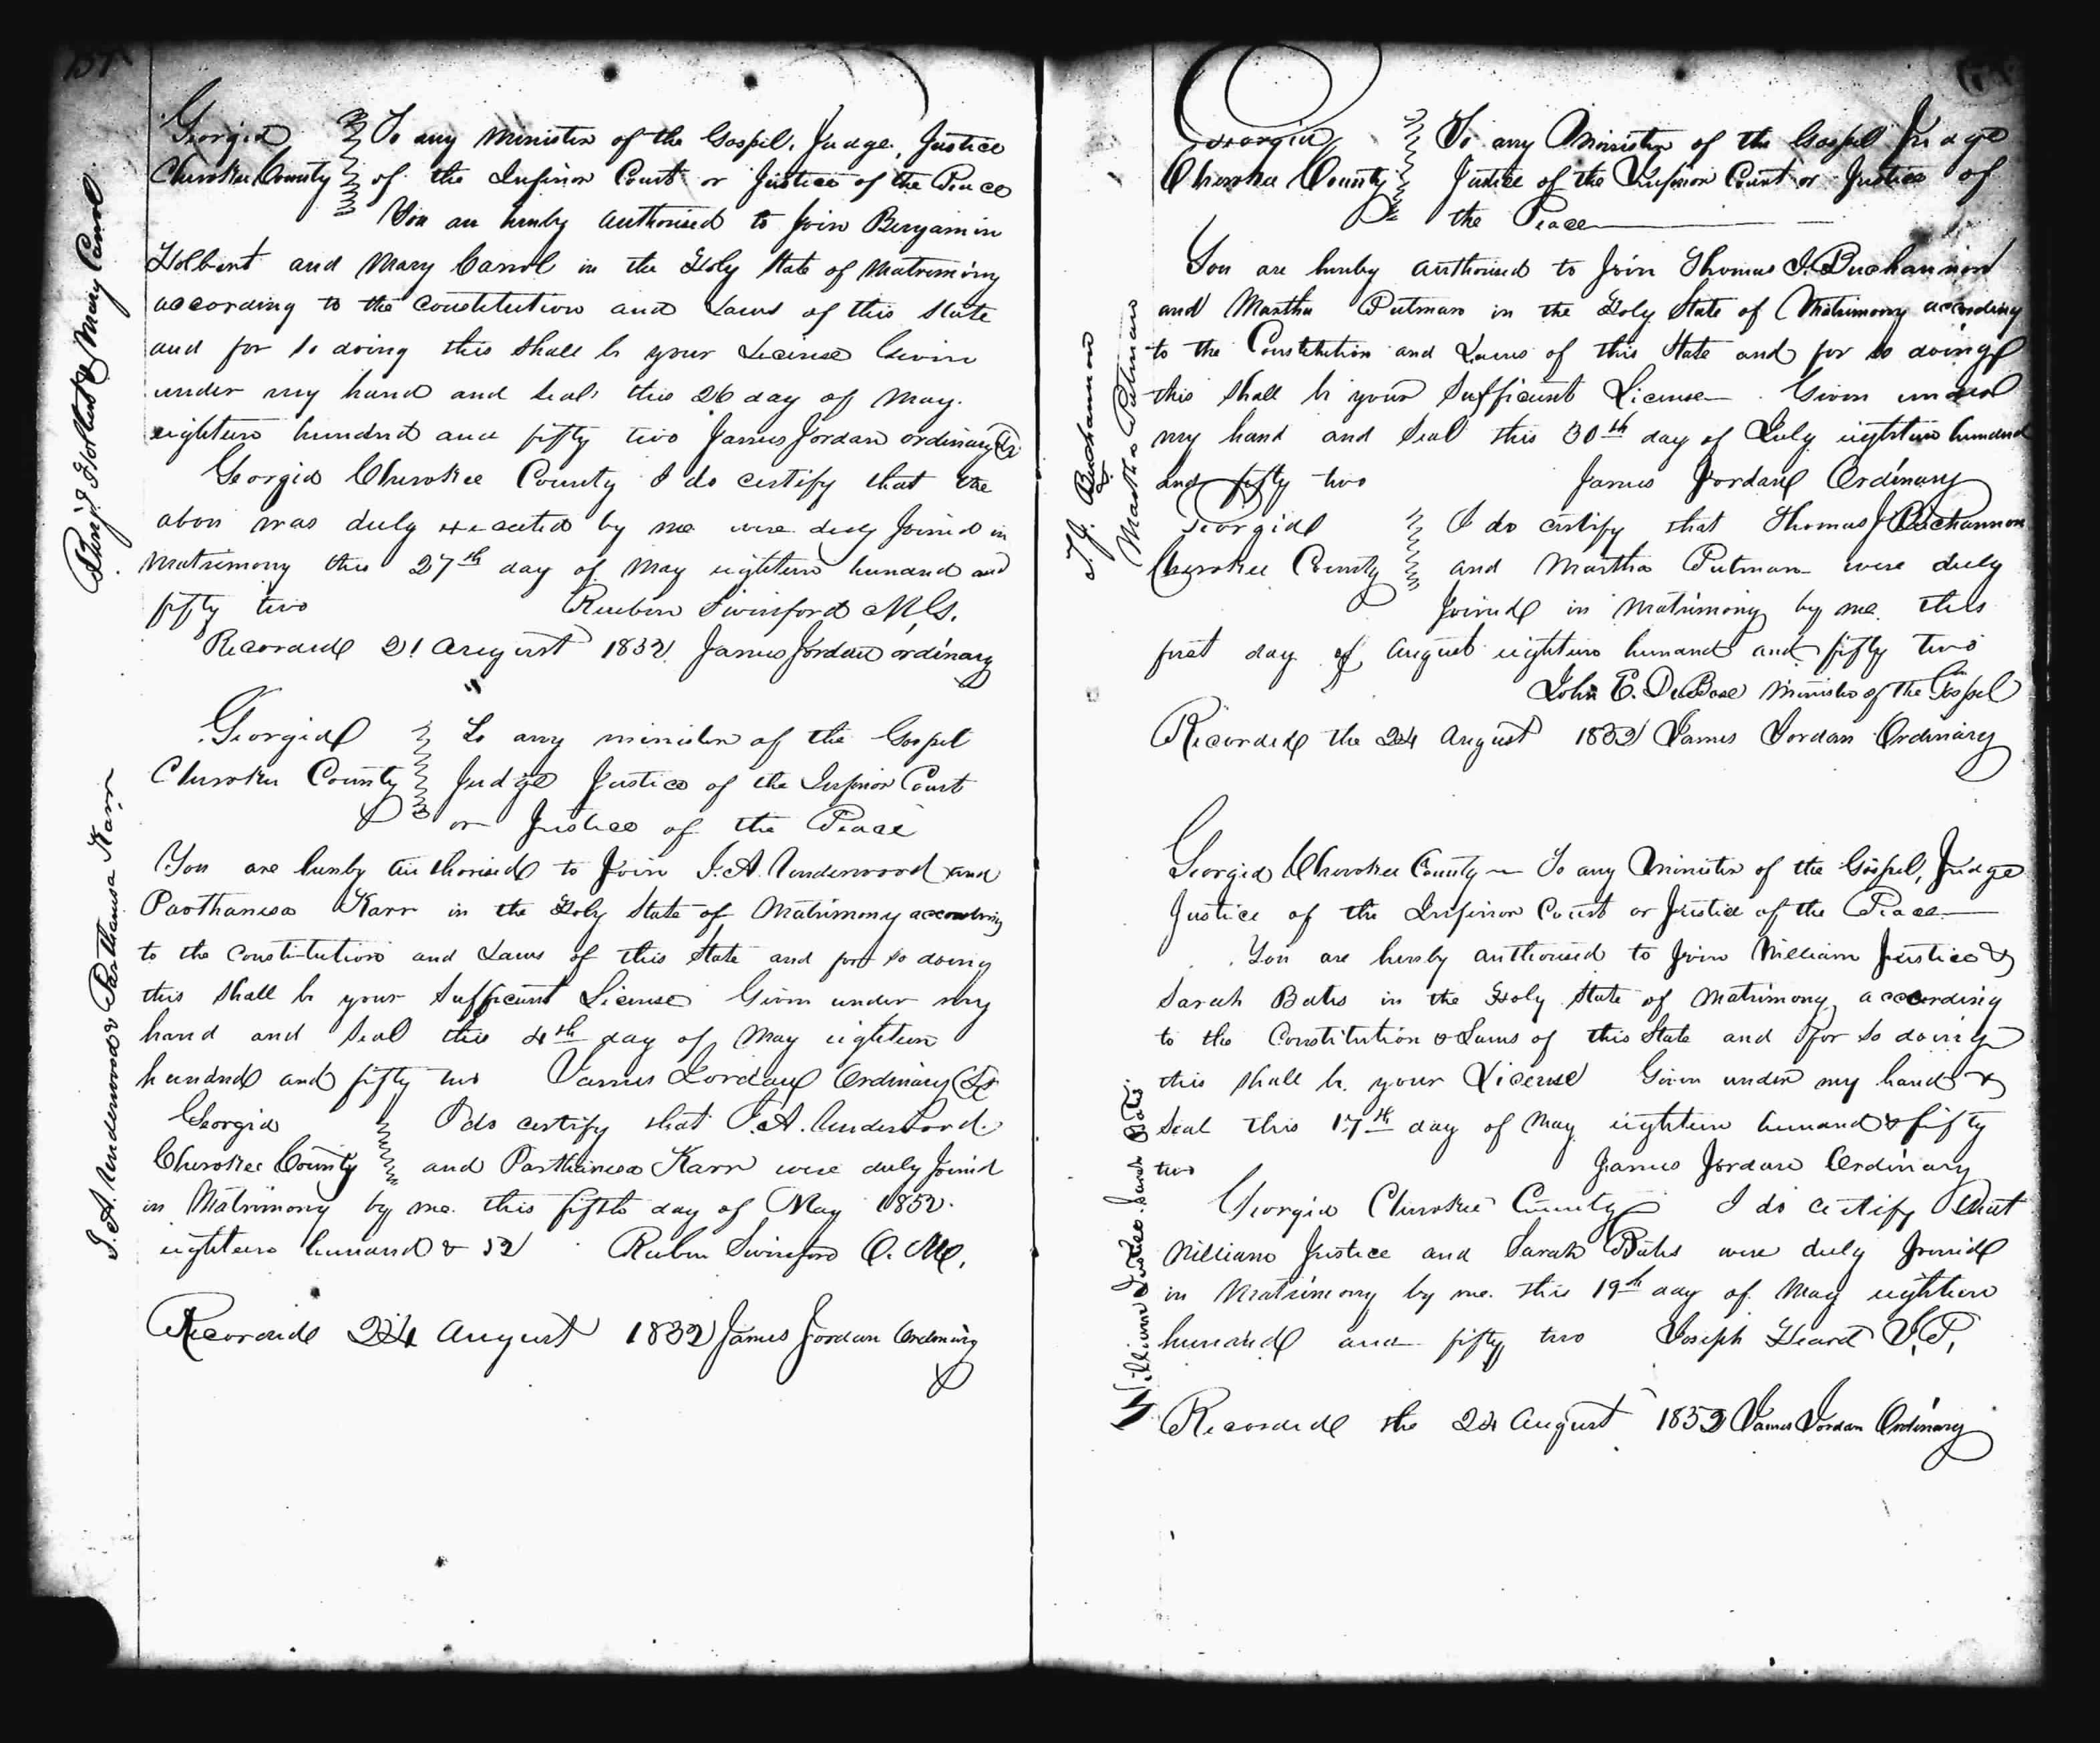 Benj. Holbert & Mary Carrol
Georgia To any Minister of the Gospel, Judge, Justice
Cherokee County of the Inferior Court or Justice of the Peace
You are hereby authorised to Join Benjamin
Holbert and Mary Carrol in the Holy State of Matrimony
according to the Constitution and Laws of this State
and for so doing this shall be your License Given
under my hand and seal this 26 day of May
eighteen hundred and fifty two James Jordan ordinary
Georgia Cherokee County I do certify that the
above was duly executed by me were duly Joined in
Matrimony this 27th day of May eighteen hundred and
fifty two Reubin Swinford M.G.
Recorded 21 August 1852 James Jordan ordinary
J. A. Underwood & Parthanesa Karr
Georgia To any minister of the Gospel
Cherokee County Judge Justice of the Inferior Court
or Justice of the Peace
You are hereby authorised to Join J. A. Underwood and
Parthanesa Karr in the Holy State of Matrimony according
to the Constitution and Laws of this State and for so doing
this shall be your Sufficient License Given under my
hand and Seal this 4th day of May eighteen
hundred and fifty two James Jordan Ordinary
Georgia I do certify that J. A. Underwood
Cherokee County and Parthanesa Karr were duly Joined
in Matrimony by me this fifth day of May 1852
eighteen hundred & 52 Rubin Swinford O. M.
Recorded 24 August 1852 James Jordan Ordinary
T. J. Buchannon
&
Martha Putman
Georgia To any Minister of the Gospel Judge
Cherokee County Justice of the Inferior Court or Justice of
the Peace
You are hereby authorised to Join Thomas J. Buchannon
and Martha Putman in the Holy State of Matrimony according
to the Constitution and Laws of this State and for so doing
this shall be your Sufficient License Given under
my hand and Seal this 30th day of July eighteen hundred
and fifty two James Jordan Ordinary
Georgia I do certify that Thomas J Buchannon
Cherokee County and Martha Putman were duly
Joined in Matrimony by me this
first day of August eighteen hundred and fifty two
John E. DuBose Minister of the Gospel
Recorded the 24 August 1852 James Jordan Ordinary
William Justice Sarah Bates
Georgia Cherokee County To any Minister of the Gospel, Judge
Justice of the Inferior Court or Justice of the Peace
You are hereby authorised to Join William Justice &
Sarah Bates in the Holy State of Matrimony according
to the Constitution & Laws of this State and for so doing
this shall be your License Given under my hand &
Seal this 17th day of May eighteen hundred & fifty
two James Jordan Ordinary
Georgia Cherokee County I do certify that
William Justice and Sarah Bates were duly Joined
in Matrimony by me this 19th day of May eighteen
hundred and fifty two Joseph Heard J. P.
Recorded the 24 August 1852 James Jordan Ordinary